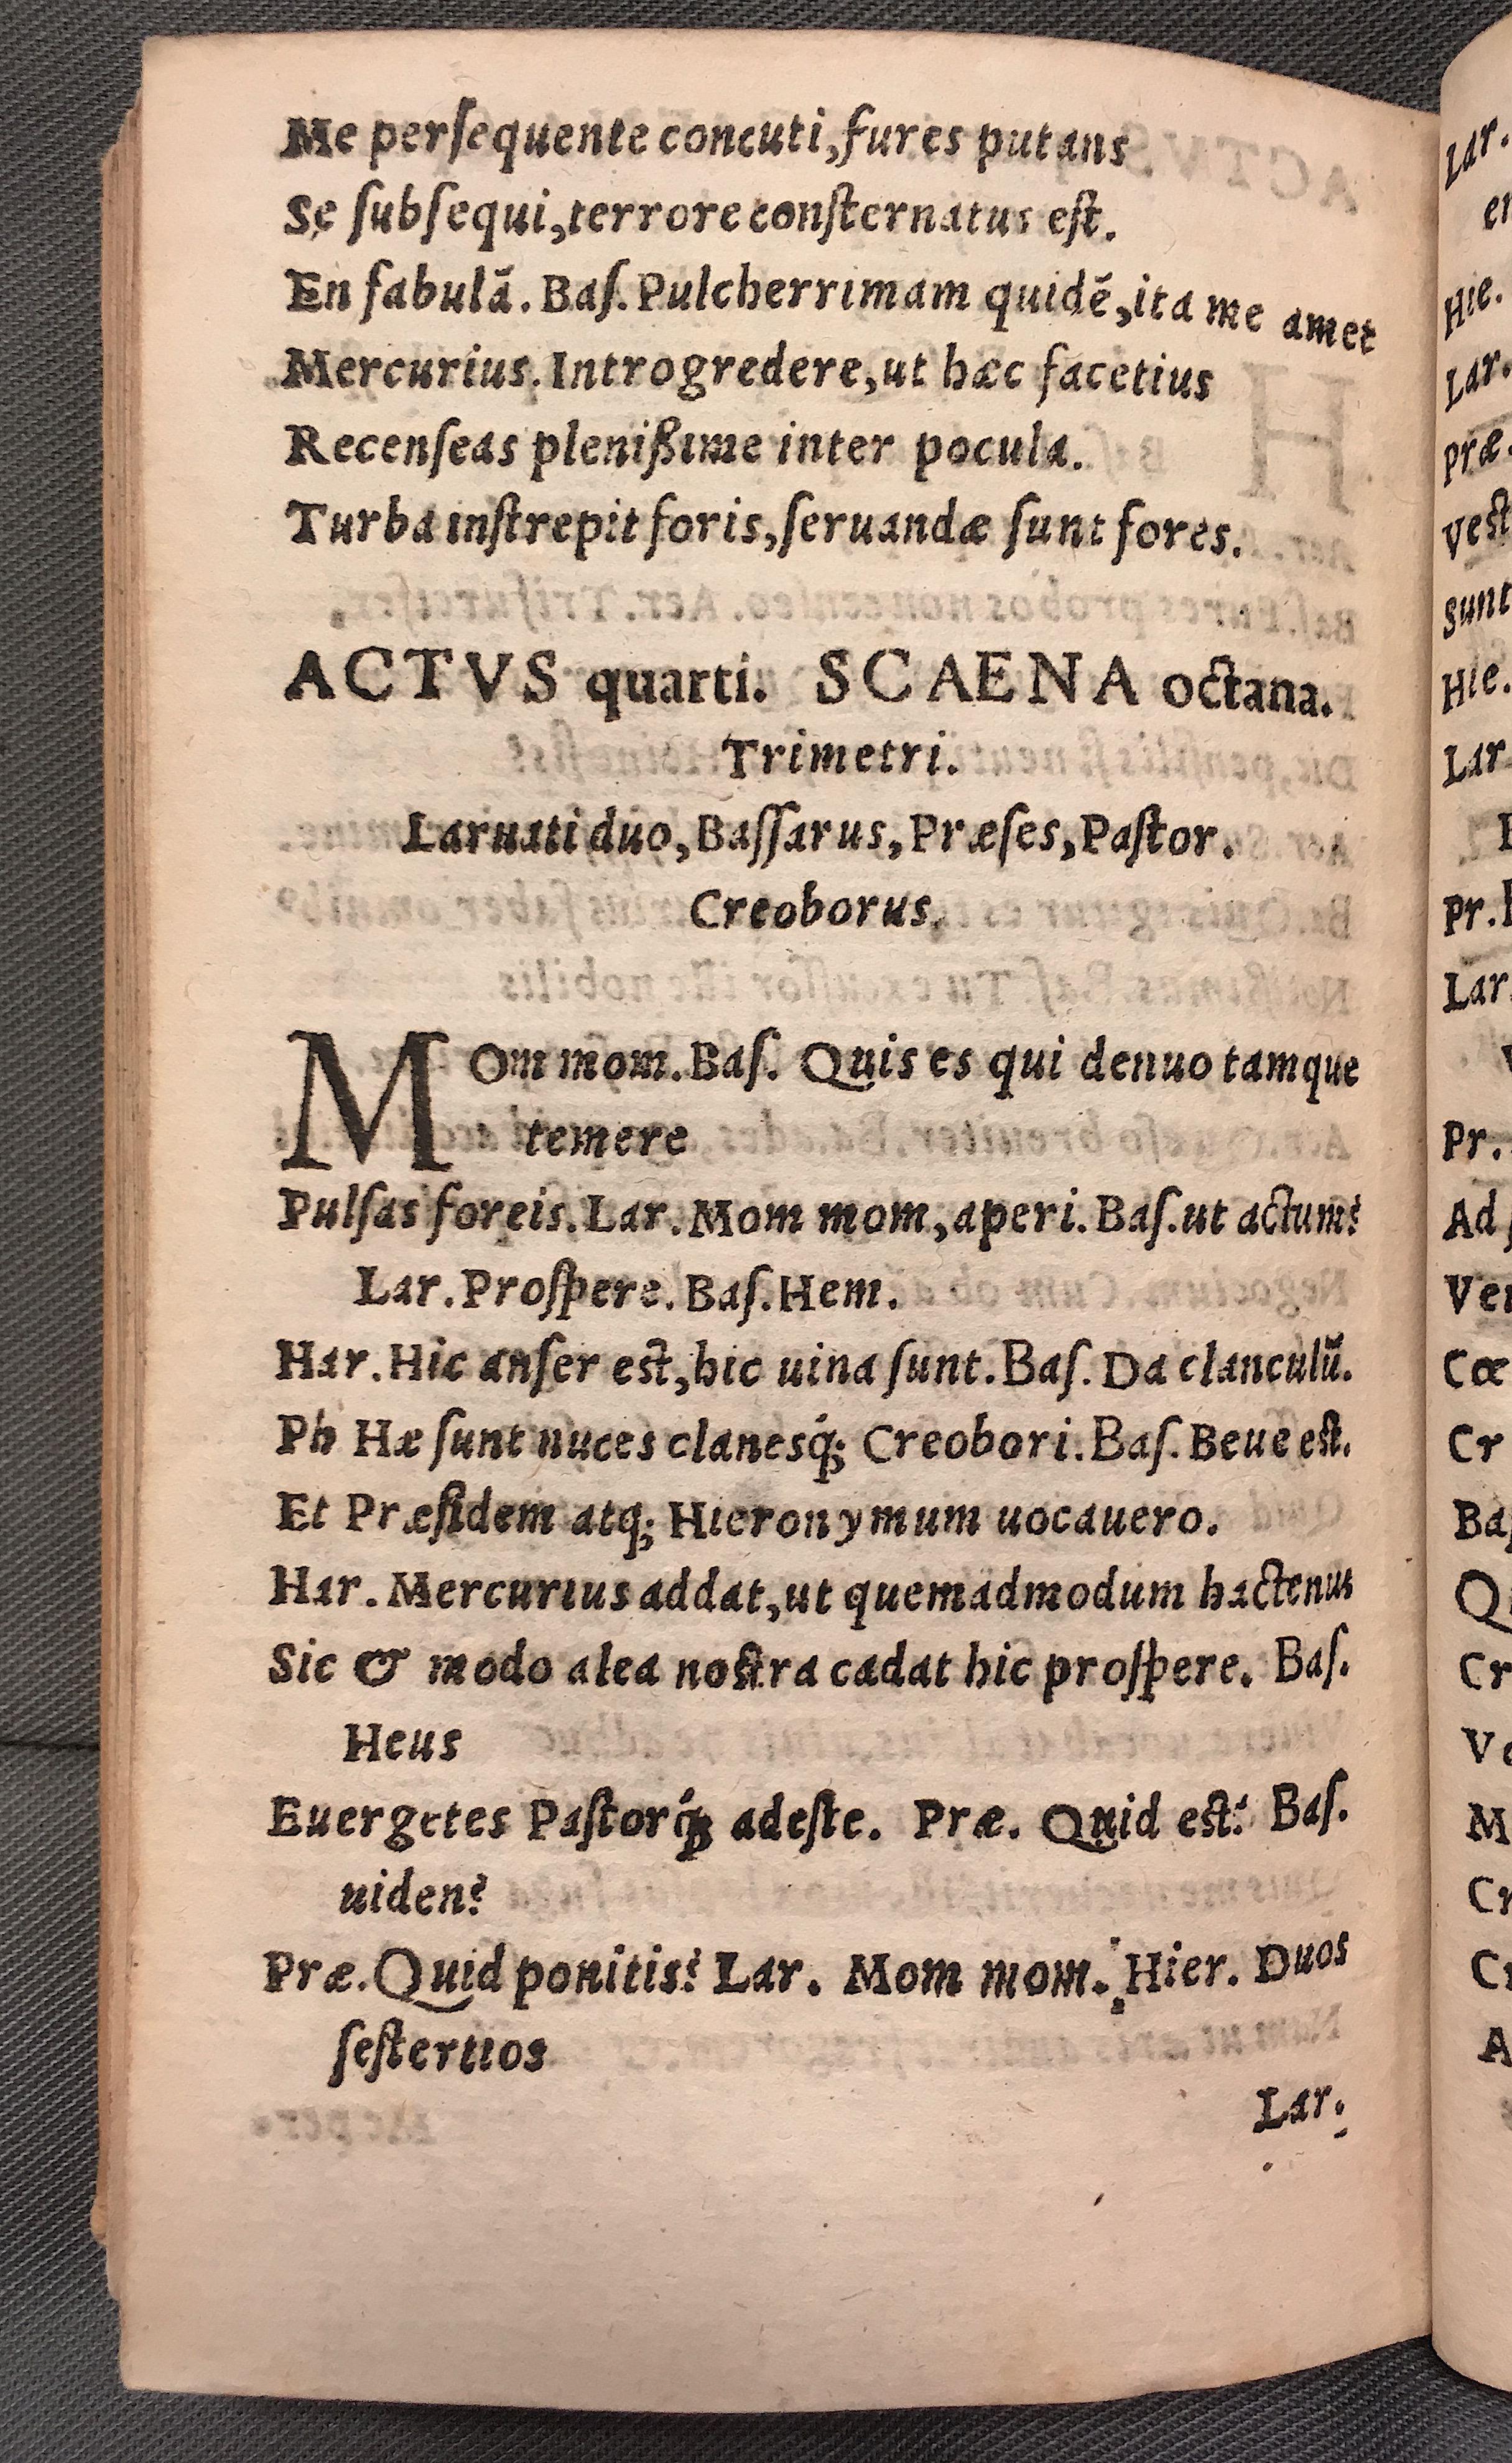 Me perſequente concuti, fures putans
Se ſubſequi, terrore conſternatus eſt.
En fabulã. Baſ. Pulcherrimam quidẽ, ita me amet
Mercurius. Introgredere, ut hæc facetius
Recenſeas plenißime inter pocula.
Turba inſtrepit foris, ſeruandæ ſunt fores.
ACTVS quarti. SCAENA octana.
Trimetri.
Laruati duo, Baſſarus, Præſes, Paſtor.
Creoborus.
MOm mom. Baſ. Quis es qui denuo tamque
temere
Pulſas foreis. Lar. Mom mom, aperi. Baſ. ut actum?
Lar. Proſpere. Baſ. Hem.
Har. Hic anſer eſt, hic uina ſunt. Baſ. Da clanculũ.
Ph Hæ ſunt nuces clanesq́; Creobori. Baſ. Beue eſt.
Et Præſidem atq; Hieronymum uocauero.
Har. Mercurius addat, ut quemadmodum hactenus
Sic & modo alea noſtra cadat hic proſpere. Baſ.
Heus
Euergetes Paſtorq́; adeſte. Præ. Quid eſt? Baſ.
uiden?
Præ. Quid ponitis? Lar. Mom mom. Hier. Duos
ſeſtertios
Lar.
Lar.
er
Hie.
Lar.
præ.
Veſt
sunt
Hie.
Lar
Pr.
Lar.
Pr.
Ad
Ver
Cœ
Cr
Baſ
Qu
Cr
Ve
M
Cr
Cr
A